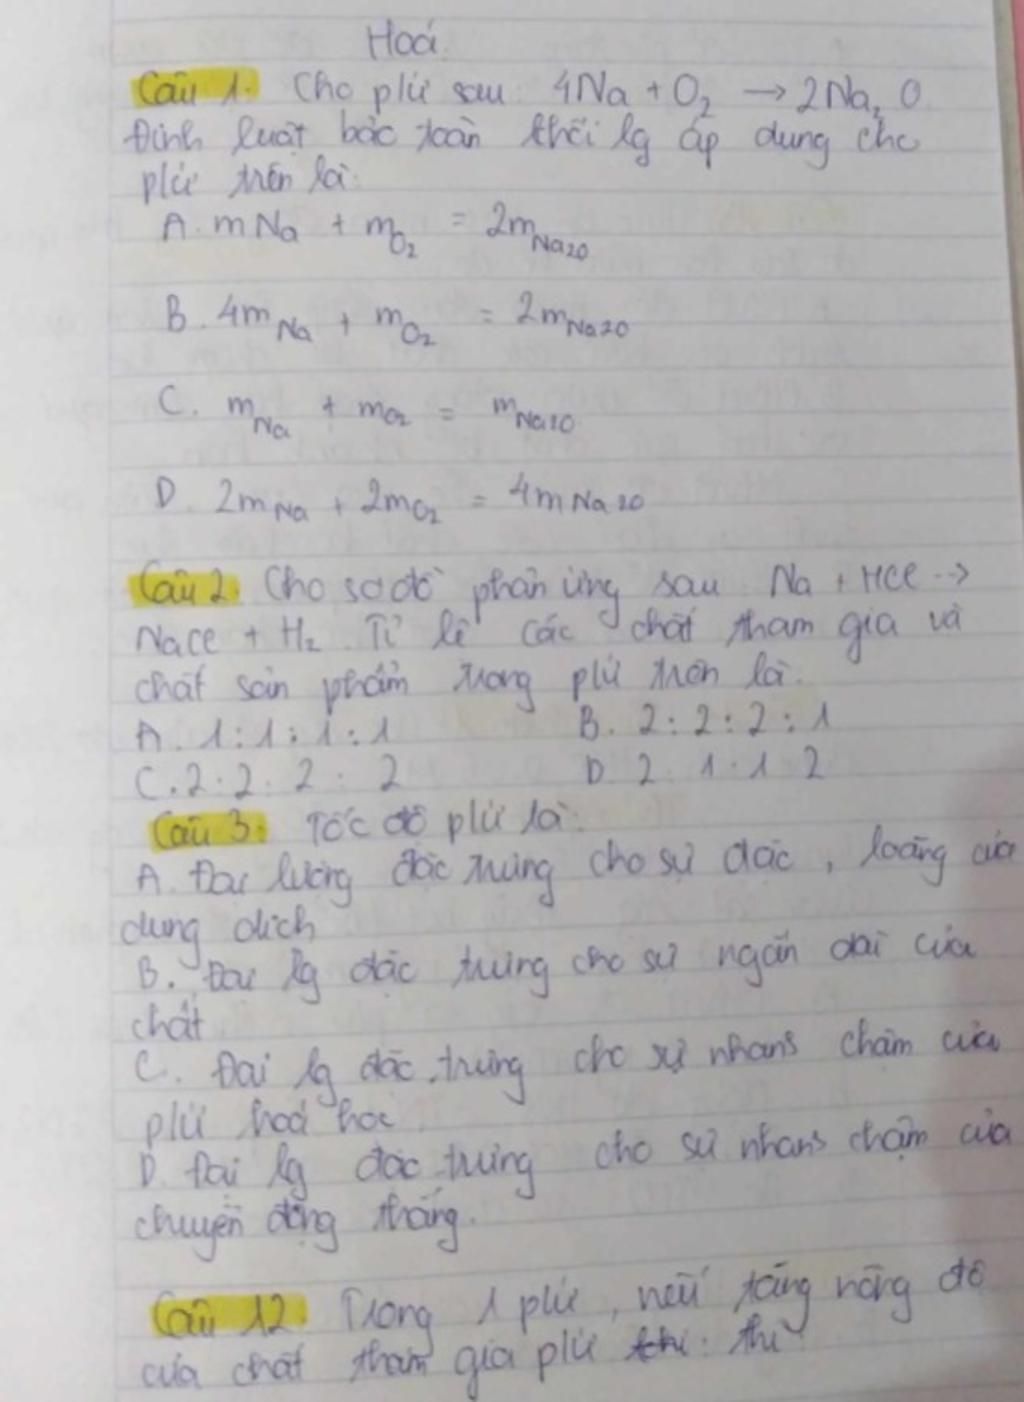 Hoá
Câu 1. Cho pứ sau: 4Na + O₂ → 2Na₂O
Định luật bảo toàn khối lg áp dụng cho
pứ trên là:
A. mNa + mO₂ = 2mNa₂O
B. 4mNa + mO₂ = 2mNa₂O
C. mNa + mO₂ = mNa₂O
D. 2mNa + 2mO₂ = 4mNa₂O
Câu 2. Cho sơ đồ phản ứng sau Na + HCl -->
NaCl + H₂. Tỉ lệ các chất tham gia và
chất sản phẩm trong pứ trên là:
A. 1:1:1:1 B. 2:2:2:1
C. 2:2:2:2 D 2 1.1 2
Câu 3: Tốc độ pứ là:
A. Đại lượng đặc trưng cho sự đặc, loãng của
dung dịch
B. Đại lg đặc trưng cho sự ngắn dài của
chất
C. Đại lg đặc trưng cho sự nhanh chậm của
pứ hoá học
D. Đại lg đặc trưng cho sự nhanh chậm của
chuyển động thẳng.
Câu 12. Trong 1 pứ, nếu tăng nồng độ
của chất tham gia pứ thì